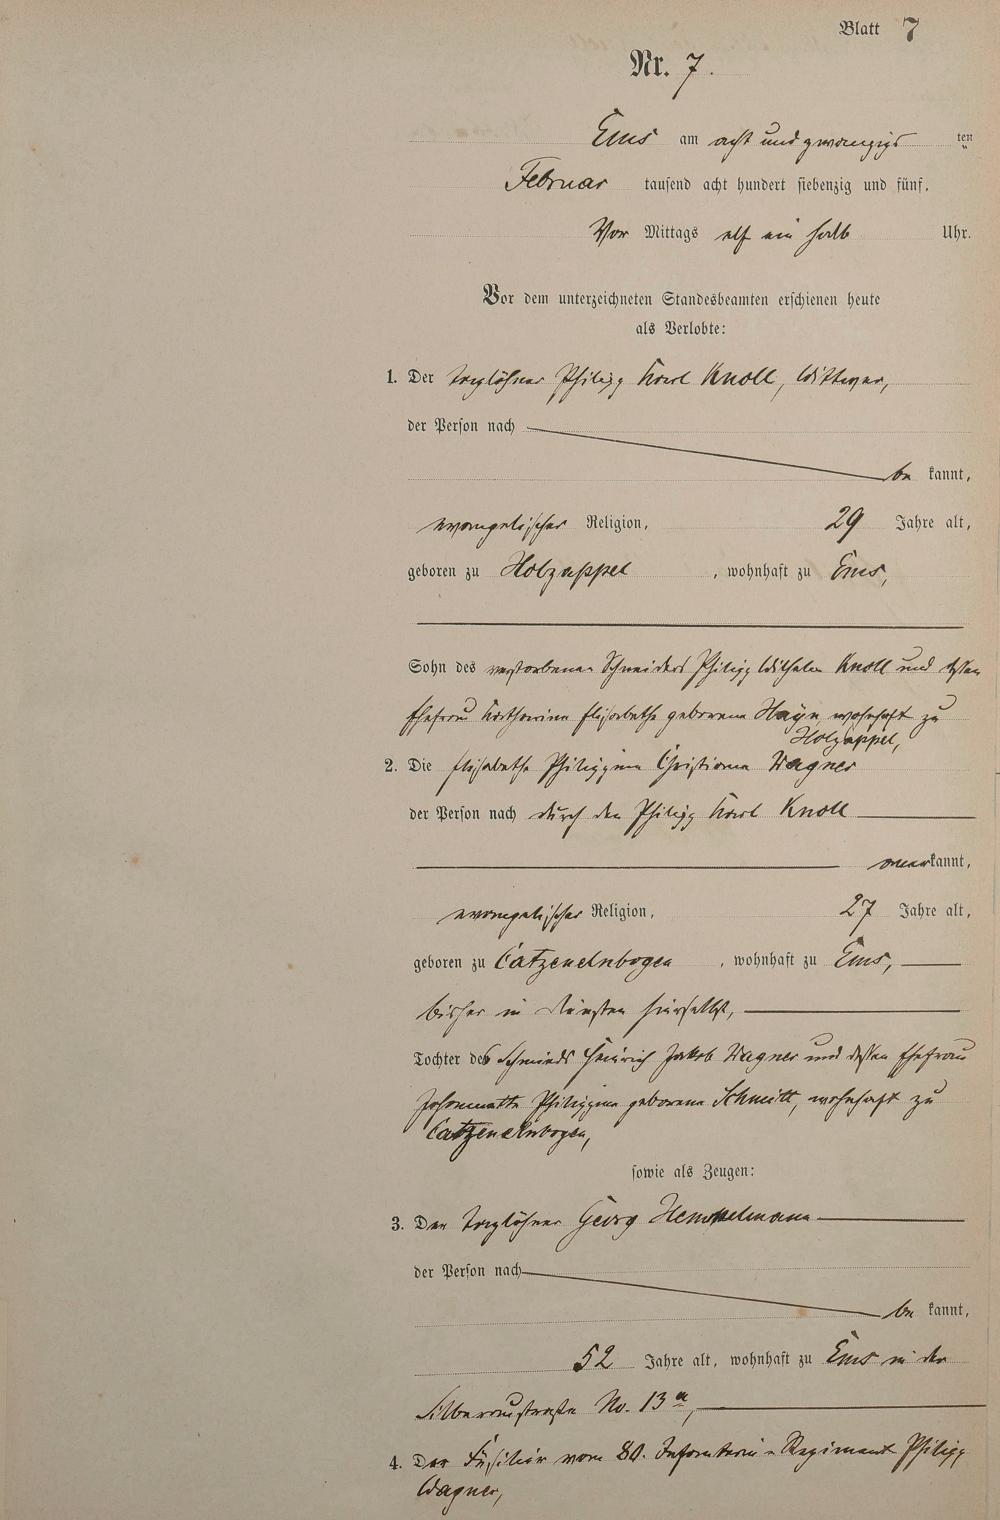 Blatt 7
Nr. 7.
Ems am acht und zwanzigsten
Februar tausend acht hundert siebenzig und fünf,
Vor Mittags elf ein halb Uhr.
Vor dem unterzeichneten Standesbeamten erschienen heute
als Verlobte:
1. Der Taglöhner Philipp Karl Knoll, Wittwer,
der Person nach
bekannt,
evangelischer Religion, 29 Jahre alt,
geboren zu Holzappel, wohnhaft zu Ems,
Sohn des verstorbenen Schneiders Philipp Wilhelm Knoll und dessen
Ehefrau Katharina Elisabethe geborene Hayn, wohnhaft zu
Holzappel,
2. Die Elisabethe Philippine Christiane Wagner
der Person nach durch den Philipp Karl Knoll
anerkannt,
evangelischer Religion, 27 Jahre alt,
geboren zu Catzenelnbogen, wohnhaft zu Ems,
bisher in Diensten hierselbst,
Tochter des Schmieds Heinrich Jakob Wagner und dessen Ehefrau
Johannette Philippine geborene Schmitt, wohnhaft zu
Catzenelnbogen,
sowie als Zeugen:
3. Der Taglöhner Georg
der Person nach
bekannt,
52 Jahre alt, wohnhaft zu Ems in der
Silberaustraße No. 13a,
4. Der Füsilier vom 80. Infanterie-Regiment Philipp
Wagner,